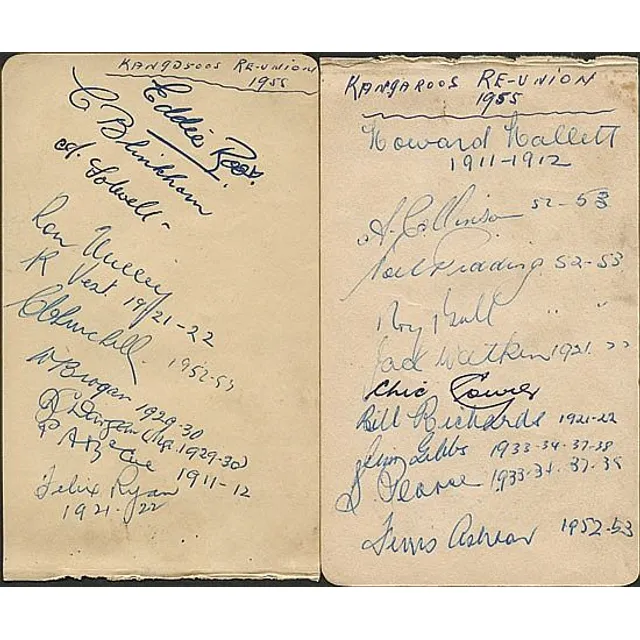 KANGAROOS RE-UNION
1955
Eddie Root.
C Blinkham
A.
Ron
R Vest. 19/21-22
C Churchill. 1952-53
W Brogan 1929-30
(Mgr. 1929-30
1911-12
Felix Ryan
1921-22
KANGAROOS RE-UNION
1955
Howard Hallett
1911-1912
A. Collinson 52-53
Noel Pidding 52-53
Roy Bull " "
Jack Watkins 1921-22
Chic
Bill Richards 1921-22
Jim Gibbs 1933-34-37-38
S. Pearce 1933-34-37-38
Ferris Ashton 1952-53